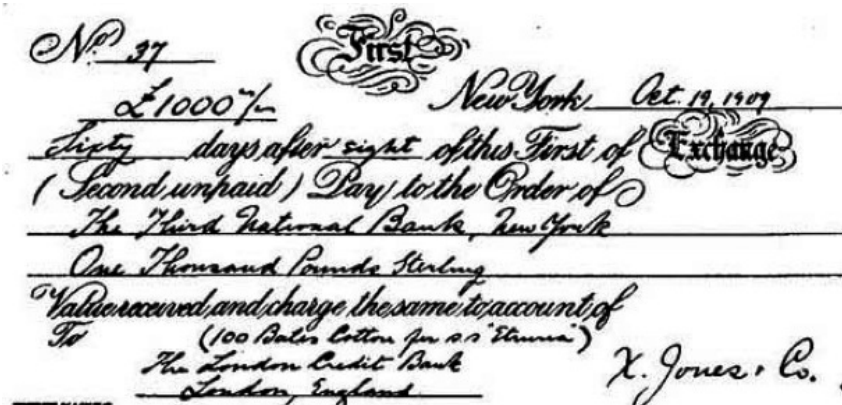 No. 37
First
£1000 n/n
New York Oct. 19, 1909
Sixty days after sight of this First of Exchange
(Second unpaid) Pay to the Order of
The Third National Bank, New York
One Thousand Pounds Sterling
Value received and charge the same to account of
To (100 Bales Cotton per s.s "Etruria")
The London Credit Bank
London, England
X. Jones & Co.